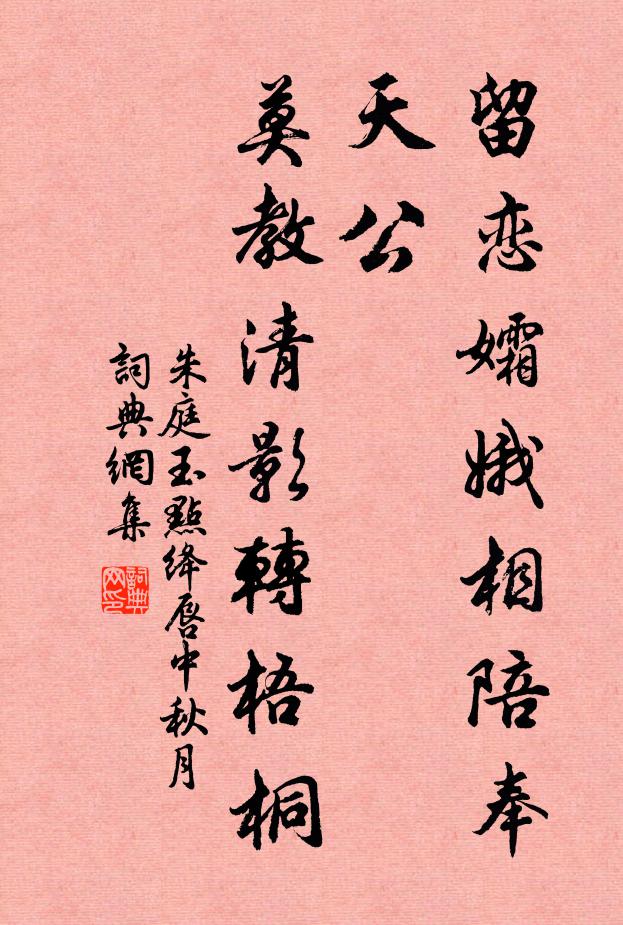 留恋孀娥相陪奉
天公
莫教清影轉梧桐
朱庭玉點绛唇中秋月
詞典網集
詞典網印